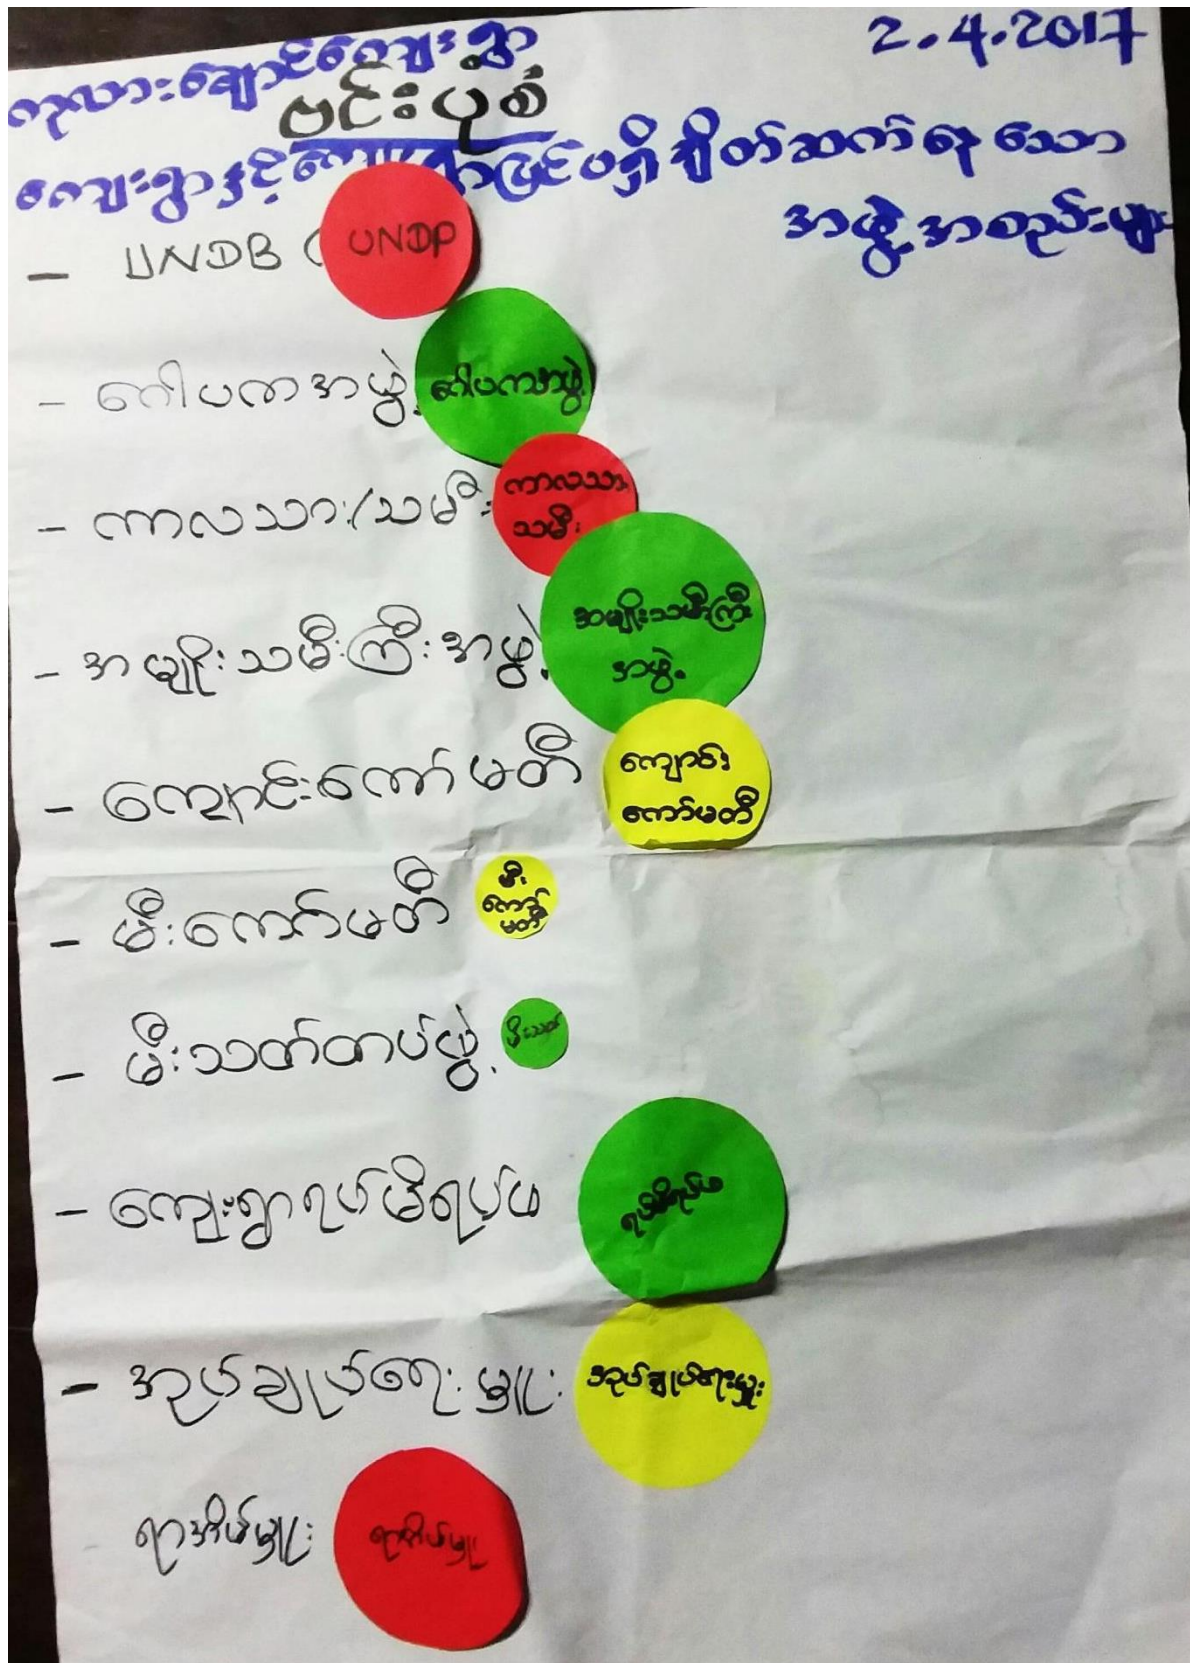 ကုလားချောင်ကျေးရွာ
2.4.2017
ဗင်းပုံစံ
ကျေးရွာနှင့် ပြင်ပရှိ ချိတ်ဆက်နေသော
အဖွဲ့အစည်းများ
- UNDB ( UNDP
- ဂေါပကအဖွဲ့ ဂေါပကအဖွဲ့
- ကာလသား/သမီး ကာလသား
သမီး
- အမျိုးသမီးကြီးအဖွဲ့ အမျိုးသမီးကြီး
အဖွဲ့
- ကျောင်းကော်မတီ ကျောင်း
ကော်မတီ
- မီးကော်မတီ မီး
ကော်
မတီ
- မီးသတ်တပ်ဖွဲ့ မီးသတ်
- ကျေးရွာရပ်မိရပ်ဖ ရပ်မိရပ်ဖ
- အုပ်ချုပ်ရေးမှူး အုပ်ချုပ်ရေးမှူး
- ရာအိမ်မှူး ရာအိမ်မှူး